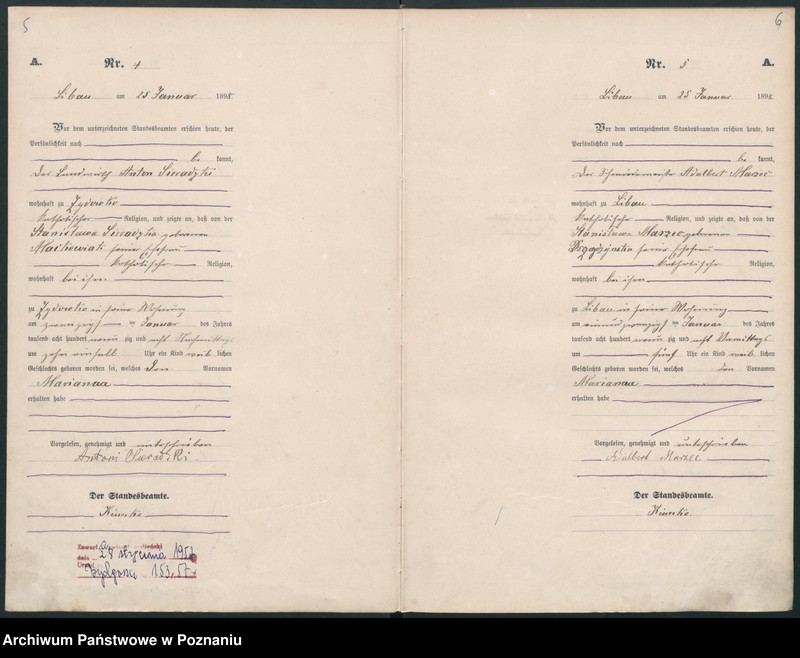 5
A.
Nr. 4
Libau am 25 Januar 1898
Vor dem unterzeichneten Standesbeamten erschien heute, der
Persönlichkeit nach
be kannt,
der Landwirth Anton
wohnhaft zu
katholischer Religion, und zeigte an, daß von der
Stanislawa geborenen
seiner Ehefrau
katholischer Religion,
wohnhaft bei ihm
zu in seiner Wohnung
am zwanzigsten Januar des Jahres
tausend acht hundert neunzig und acht Nachmittags
um zehn einhalb Uhr ein Kind weib lichen
Geschlechts geboren worden sei, welches den Vornamen
Marianna
erhalten habe
Vorgelesen, genehmigt und unterschrieben
Antoni
Der Standesbeamte.
28 stycznia 195
153/57
6
Nr. 5
A.
Libau am 25 Januar 1898
Vor dem unterzeichneten Standesbeamten erschien heute, der
Persönlichkeit nach
be kannt,
der Schmiedemeister Adalbert Marzec
wohnhaft zu Libau
katholischer Religion, und zeigte an, daß von der
Stanislawa Marzec geborenen
seiner Ehefrau
katholischer Religion,
wohnhaft bei ihm
zu Libau in seiner Wohnung
am einundzwanzigsten Januar des Jahres
tausend acht hundert neunzig und acht Vormittags
um fünf Uhr ein Kind weib lichen
Geschlechts geboren worden sei, welches den Vornamen
Marianna
erhalten habe
Vorgelesen, genehmigt und unterschrieben
Adalbert Marzec
Der Standesbeamte.
Archiwum Państwowe w Poznaniu